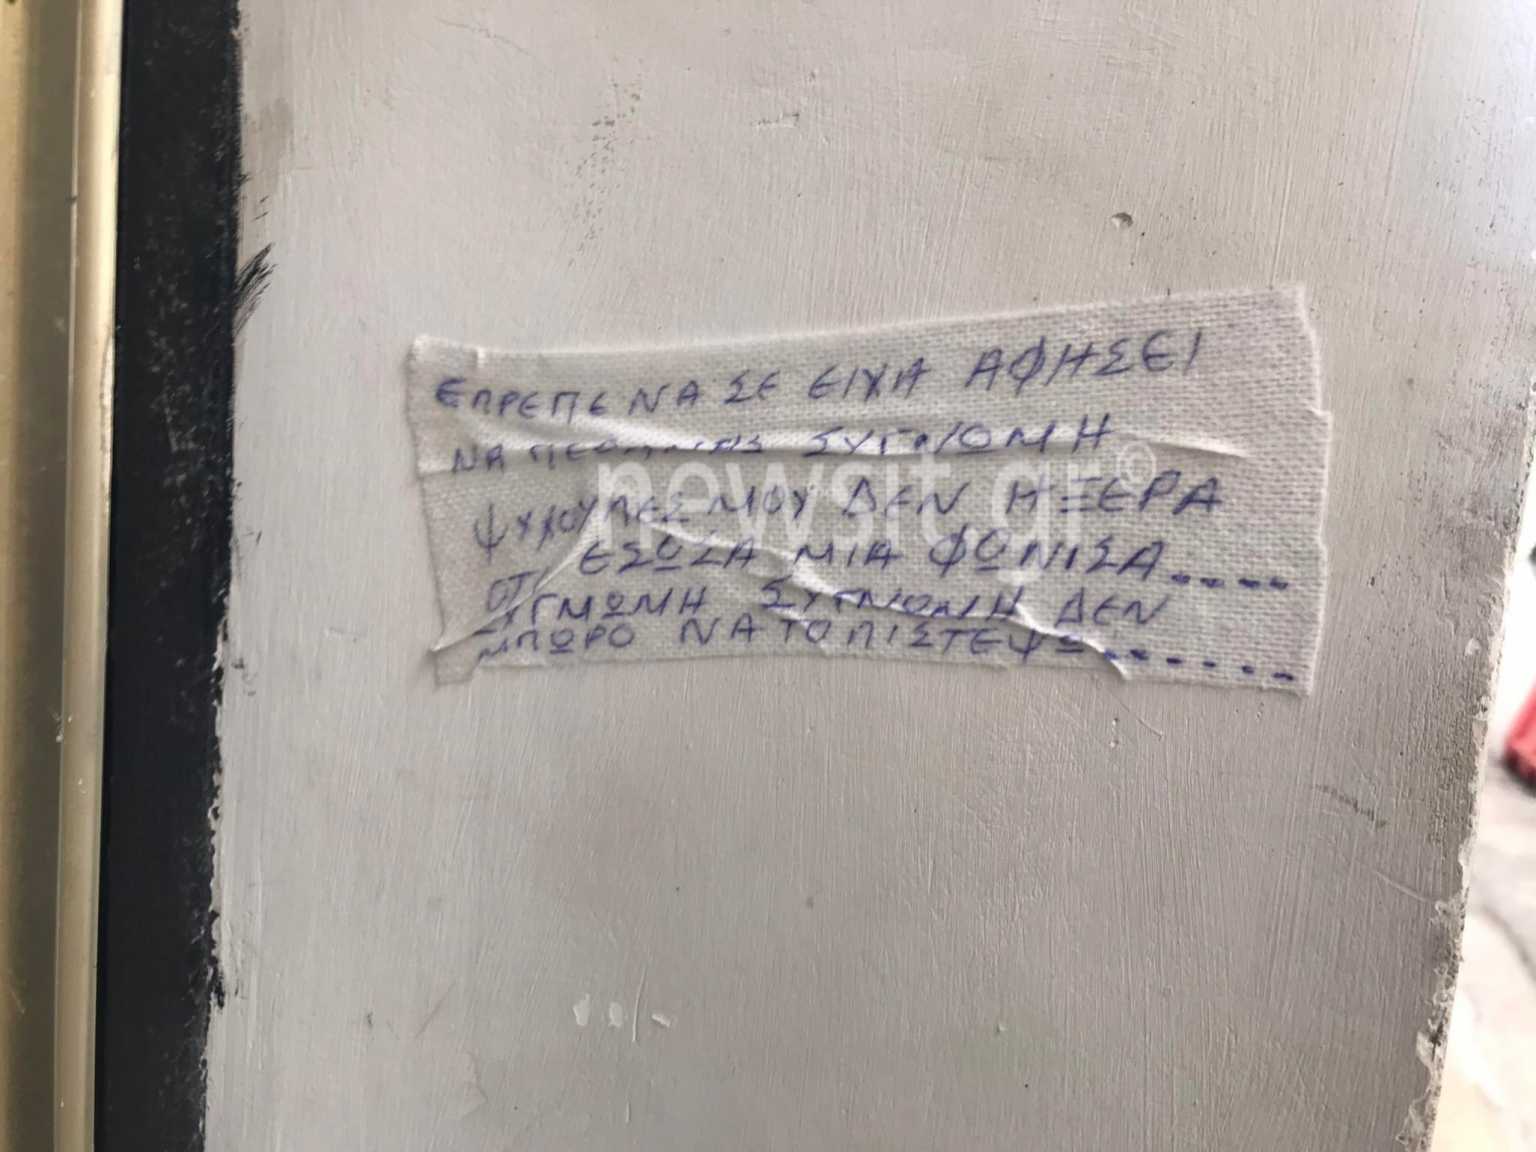 ΕΠΡΕΠΕ ΝΑ ΣΕ ΕΙΧΑ ΑΦΗΣΕΙ
ΝΑ ΣΥΓΝΩΜΗ
ΨΥΧΟΥΛΕΣ ΜΟΥ ΔΕΝ ΗΞΕΡΑ
ΕΣΩΣΑ ΜΙΑ ΦΩΝΙΣΑ....
ΣΥΓΝΩΜΗ ΔΕΝ
ΜΠΩΡΟ ΝΑ ΤΟ ΠΙΣΤΕΨΩ......
newsit.gr©